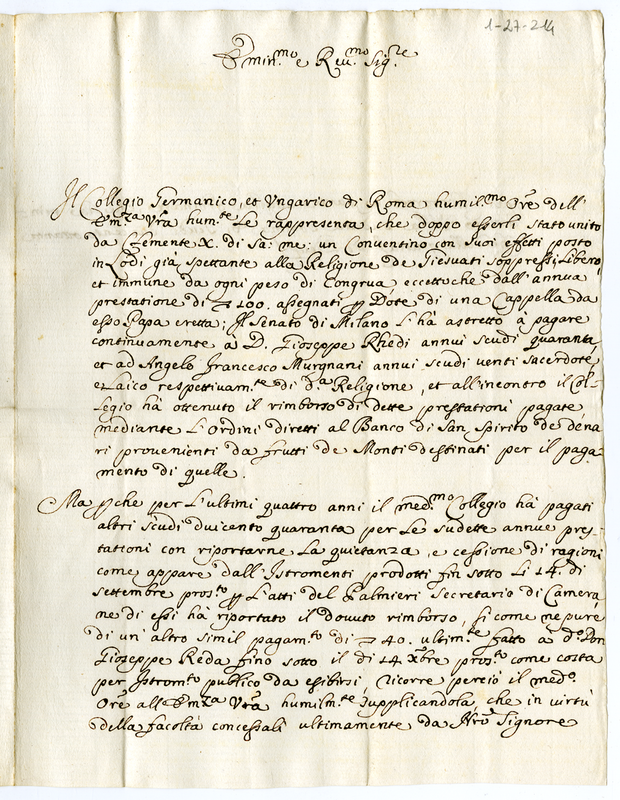 1-27-214
Em̃in.mo e Reu.mo Sig.re
Il Collegio Germanico, et Vngarico di Roma humil.mo Ore dell'
Em.za Vrã hum.te Le rappresenta, che doppo esserli stato unito
da Clemente X. di Sa: me: un Conventino con suoi effetti posto
in Lodi già spettante alla Religione de Giesuati soppressi, Libero,
et immune da ogni peso di Congrua eccettoche dall'annua
prestatione di 100. assegnati p Dote di una Cappella da
esso Papa eretta; Il Senato di Milano l'hà astretto à pagare
continuamente à D. Gioseppe Rhedi annui scudi quaranta,
et ad Angelo Francesco Murgnani annui scudi venti sacerdote,
et Laico respettivam.te di d.a Religione, et all'incontro il Col-
legio hà ottenuto il rimborso di dette prestationi pagate
mediante L'Ordini diretti al Banco di San Spirito de dena
ri provenienti da frutti de Monti destinati per il paga-
mento di quelle.
Ma pche per L'ultimi quattro anni il med.mo Collegio hà pagati
altri scudi duicento quaranta per Le sudette annue pres-
tationi con riportarne La quietanza, e cessione di ragioni
come appare dall'Istromenti prodotti fin sotto Li 14. di
settembre pros.to p L'atti del Palmieri Secretario di Camera
ne di essi hà riportato il dovuto rimborso, si come nepure
di un'altro simil pagam.to di 40. ultim.te fatto à d.o Don
Gioseppe Reda fino sotto il di 14 Xbre pros.to come costa
per Istrom.to publico da esibirsi, ricorre perciò il med.o
Ore all'Em.za Vrã humilm.te supplicandola, che in virtù
della facoltà concessali ultimamente da Nrõ Signore